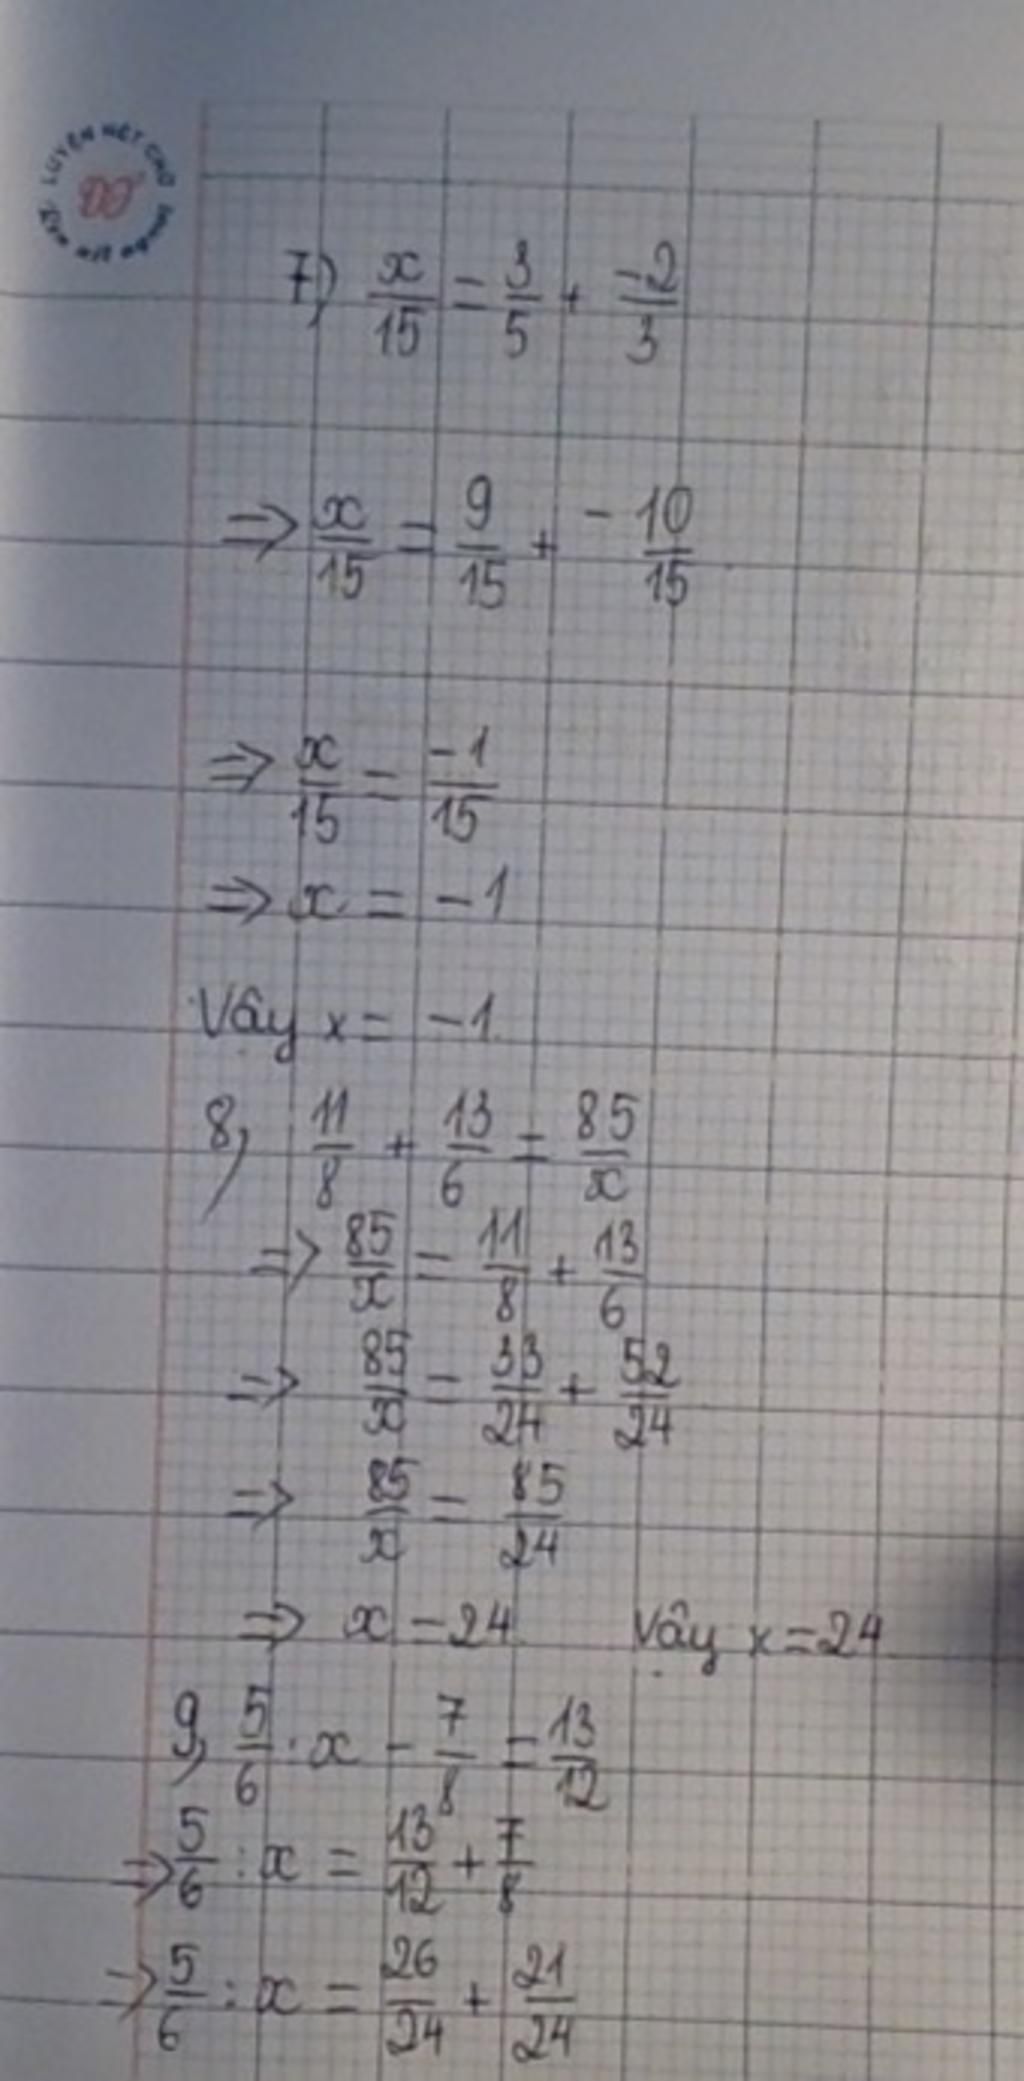 LUYỆN NÉT CHỮ
7) x/15 = 3/5 + -2/3
=> x/15 = 9/15 + -10/15
=> x/15 = -1/15
=> x = -1
Vậy x = -1
8, 11/8 + 13/6 = 85/x
=> 85/x = 11/8 + 13/6
=> 85/x = 33/24 + 52/24
=> 85/x = 85/24
=> x = 24 Vậy x = 24
9, 5/6 : x - 7/8 = 13/12
=> 5/6 : x = 13/12 + 7/8
=> 5/6 : x = 26/24 + 21/24